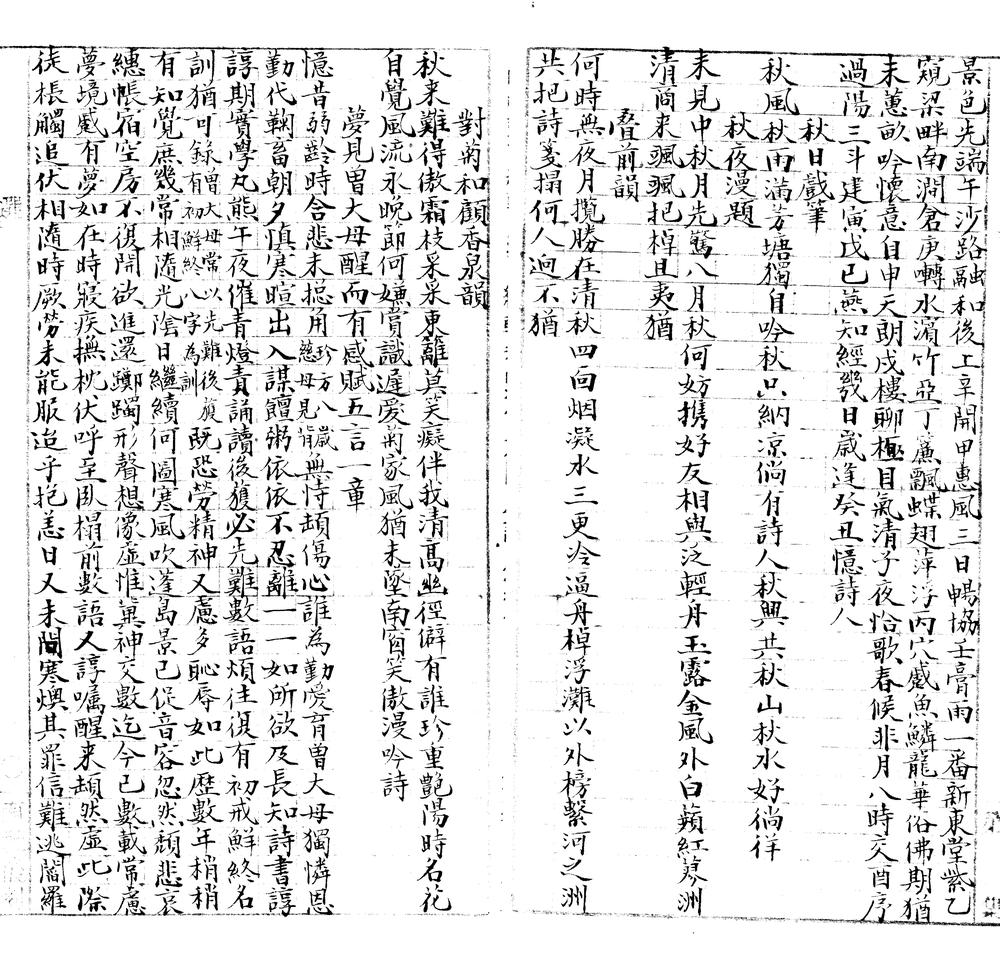 景色先端午沙路融和後上辛開甲惠風三日暢協壬膏雨一番新東堂紫乙
窺梁畔南澗倉庚囀水湄竹亞丁簾飄蝶翅萍浮丙穴感魚鱗龍華俗佛期猶
未蕙畝吟懷意自申天朗戍樓聊極目氣清子夜恰歌春候非月八時交酉序
過陽三斗建寅戊已燕知經幾日歲逢癸丑憶詩人
秋日戲筆
秋風秋雨滿芳塘獨自吟秋只納凉倘有詩人秋興共秋山秋水好倘佯
秋夜漫題
未見中秋月先驚八月秋何妨携好友相與泛輕舟玉露金風外白蘋紅蓼洲
清商来颯颯把棹且夷猶
疊前韻
何時無夜月攬勝在清秋四面烟凝水三更冷逼舟棹浮灘以外榜繫河之洲
共把詩箋搨何人迥不猶
對菊和顧香泉韻
秋来難得傲霜枝采采東籬莫笑癡伴我清高幽徑僻有誰珍重艷陽時名花
自覺風流永晚節何嫌賞識遲愛菊家風猶未墜南窗笑傲漫吟詩
夢見曾大母醒而有感賦五言一章
憶昔弱齡時含悲未揔角珍方八歲慈母見背無恃頡傷心誰為勤愛育曾大母獨憐恩
勤代鞠畜朝夕慎寒暄出入謀饘粥依依不忍離一一如所欲及長知詩書諄
諄期實學丸熊午夜催青燈責誦讀後獲必先難數語煩往復有初戒鮮終名
訓猶可錄曾大母常以先難後獲有初鮮終八字為訓既恐勞精神又慮多恥辱如此歷數年稍稍
有知覺庶幾常相隨光陰日繼續何圖寒風吹蓬島景已促音容忽然頹悲哀
繐帳宿空房不復開欲進還躑躅形聲想像虛惟冀神交數迄今已數載常慮
夢境感有夢如在時寢疾撫枕伏呼至臥榻前數語又諄囑醒来頡然虛此際
徒棖觸追伏相隨時厥勞未能服迨乎抱恙日又未問寒燠其罪信難逃閻羅